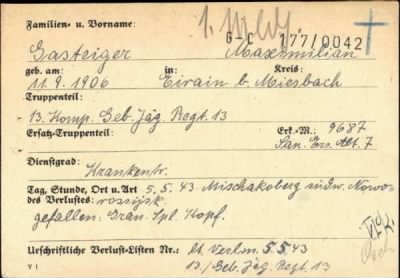 Familien- u. Vorname:
G-C 177/0042
Gasteiger Maximilian
geb. am: in: Kreis:
11.9.1906 Eirain b. Miesbach
Truppenteil:
13. Komp. Geb. Jäg. Regt. 13
Ersatz-Truppenteil: Erk.-M.: 9687
San. Ers. Abt. 7
Dienstgrad:
Krankentr.
Tag, Stunde, Ort u. Art 5.5.43 Mischakoberg südw. Nowo-
des Verlustes: rossijsk
gefallen: Gran. Spl. Kopf.
Urschriftliche Verlust-Listen Nr.: lt. Verlm. 5.5.43
V 1 13./Geb. Jäg. Regt. 13